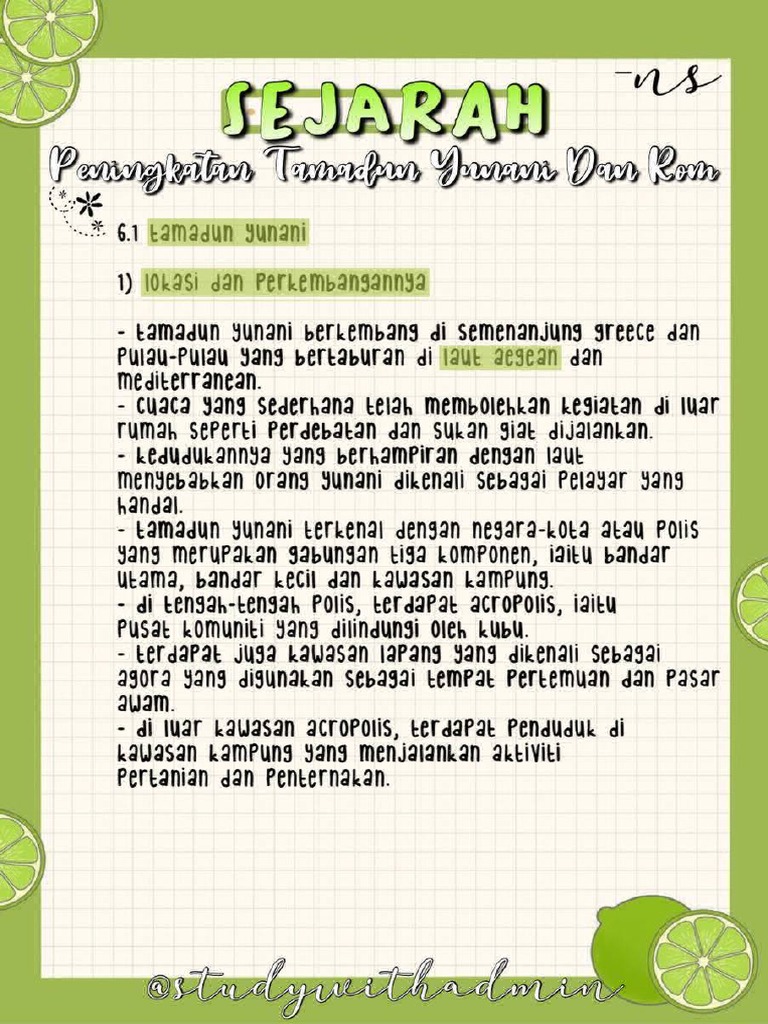 -ns
SEJARAH
Peningkatan Tamadun Yunani Dan Rom
6.1 tamadun yunani
1) lokasi dan Perkembangannya
- tamadun yunani berkembang di semenanjung greece dan
Pulau-Pulau yang bertaburan di laut aegean dan
mediterranean.
- cuaca yang sederhana telah membolehkan kegiatan di luar
rumah seperti Perdebatan dan sukan giat dijalankan.
- kedudukannya yang berhampiran dengan laut
menyebabkan orang yunani dikenali sebagai Pelayar yang
handal.
- tamadun yunani terkenal dengan negara-kota atau Polis
yang merupakan gabungan tiga komponen, iaitu bandar
utama, bandar kecil dan kawasan kampung.
- di tengah-tengah Polis, terdapat acropolis, iaitu
Pusat komuniti yang dilindungi oleh kubu.
- terdapat juga kawasan lapang yang dikenali sebagai
agora yang digunakan sebagai tempat Pertemuan dan Pasar
awam.
- di luar kawasan acropolis, terdapat Penduduk di
kawasan kampung yang menjalankan aktiviti
Pertanian dan Penternakan.
@studywithadmin